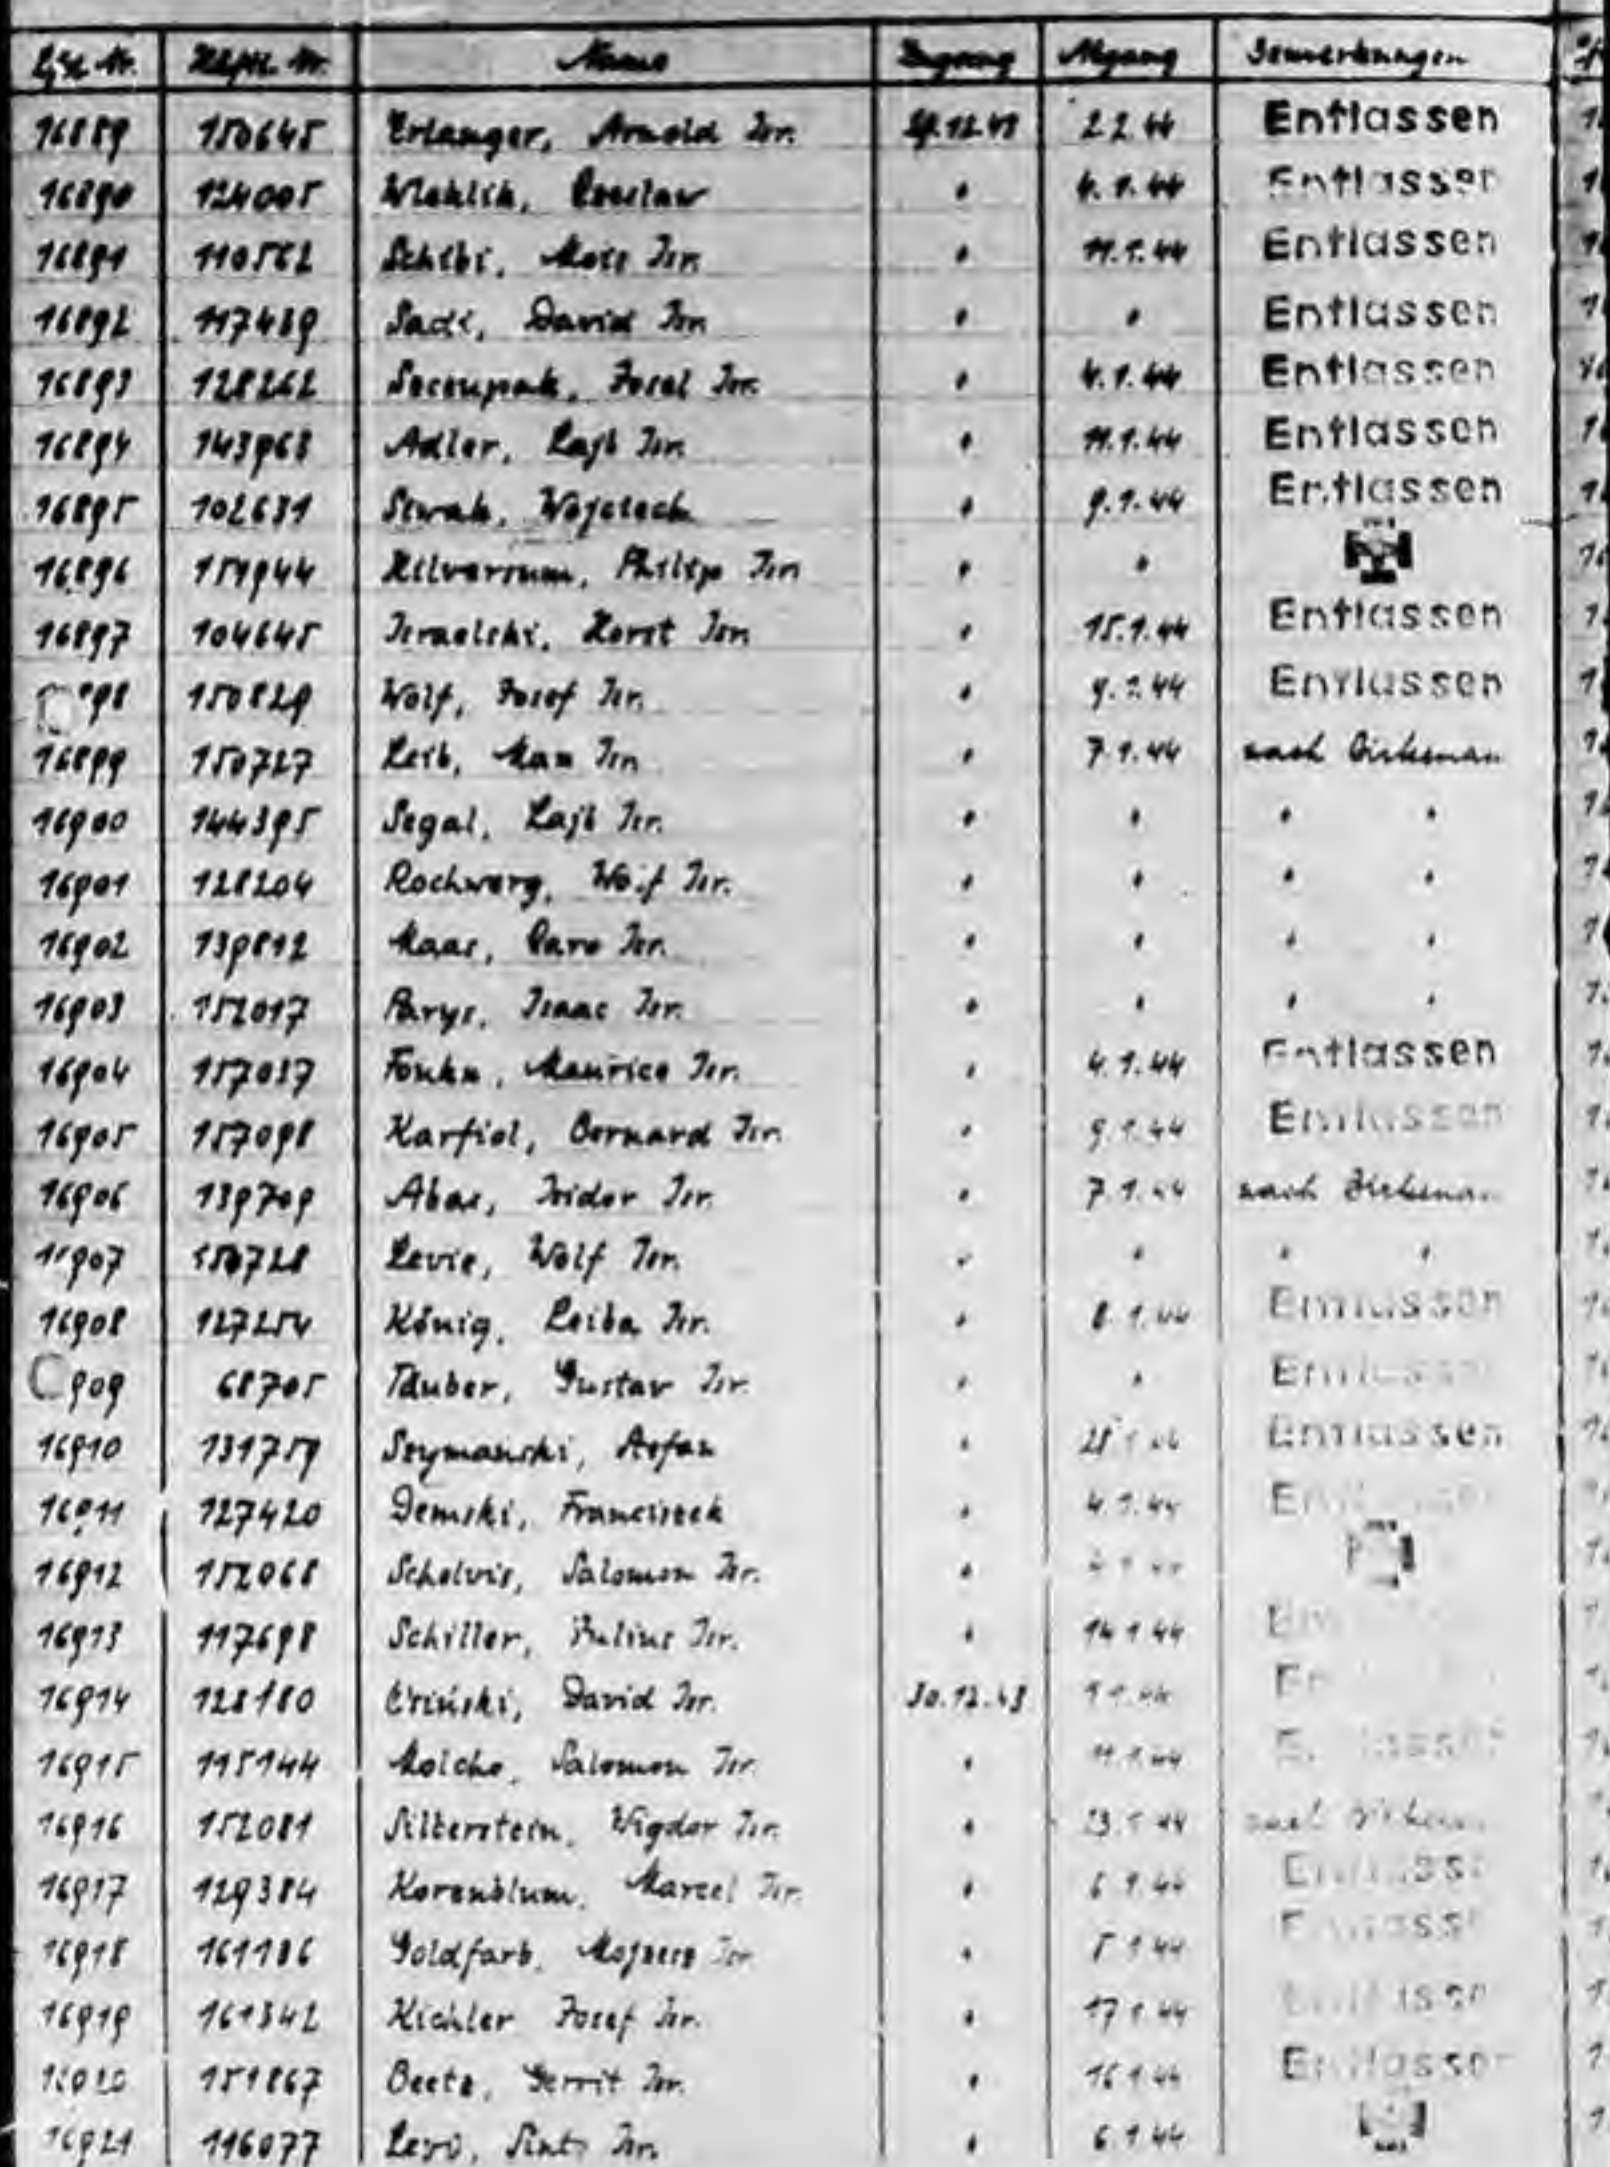 Lfd. Nr. Häftl. Nr. Name Zugang Abgang Bemerkungen
16889 150645 Erlanger, Arnold Isr. 29.12.43 2.2.44 Entlassen
16890 124005 " 4.1.44 Entlassen
16891 110562 Schibi, Mois Isr. " 11.1.44 Entlassen
16892 117489 Sadi, David Isr. " " Entlassen
16893 128262 Josel Isr. " 4.1.44 Entlassen
16894 143963 Adler, Lajb Isr. " 11.1.44 Entlassen
16895 102631 " 9.1.44 Entlassen
16896 151944 Hilversum, Philip Isr. " "
16897 104645 Israelski, Horst Isr. " 15.1.44 Entlassen
98 150829 Wolf, Josef Isr. " 9.1.44 Entlassen
16899 150727 Leib, Max Isr. " 7.1.44 nach Birkenau
16900 144395 Segal, Lajb Isr. " " " "
16901 128204 Rochwerg, Wolf Isr. " " " "
16902 139812 Maas, Isr. " " " "
16903 152017 Parys, Isaac Isr. " " " "
16904 157037 Maurice Isr. " 4.1.44 Entlassen
16905 157098 Karfiol, Bernard Isr. " 9.1.44 Entlassen
16906 139709 Abas, Isidor Isr. " 7.1.44 nach Birkenau
16907 150728 Levie, Wolf Isr. " " " "
16908 127254 König, Leiba Isr. " 8.1.44 Entlassen
909 68705 Täuber, Gustav Isr. " " Entlassen
16910 131759 Szymanski, Stefan " Entlassen
16911 127420 Demski, Franciszek " 4.1.44
16912 152068 Schelvis, Salomon Isr. "
16913 117698 Schiller, Julius Isr. " 14.1.44
16914 128180 David Isr. 30.12.43
16915 115144 Molcho, Salomon Isr. " 11.1.44 Entlassen
16916 152081 Silberstein, Wigdor Isr. " nach Birkenau
16917 129384 Korenblum, Marcel Isr. " 6.1.44 Entlassen
16918 161186 Goldfarb, Isr. " 5.1.44 Entlassen
16919 161342 Kichler Josef Isr. " 17.1.44 Entlassen
16920 151867 Beetz, Gerrit Isr. " 16.1.44 Entlassen
16921 116077 Levi, Isr. " 6.1.44